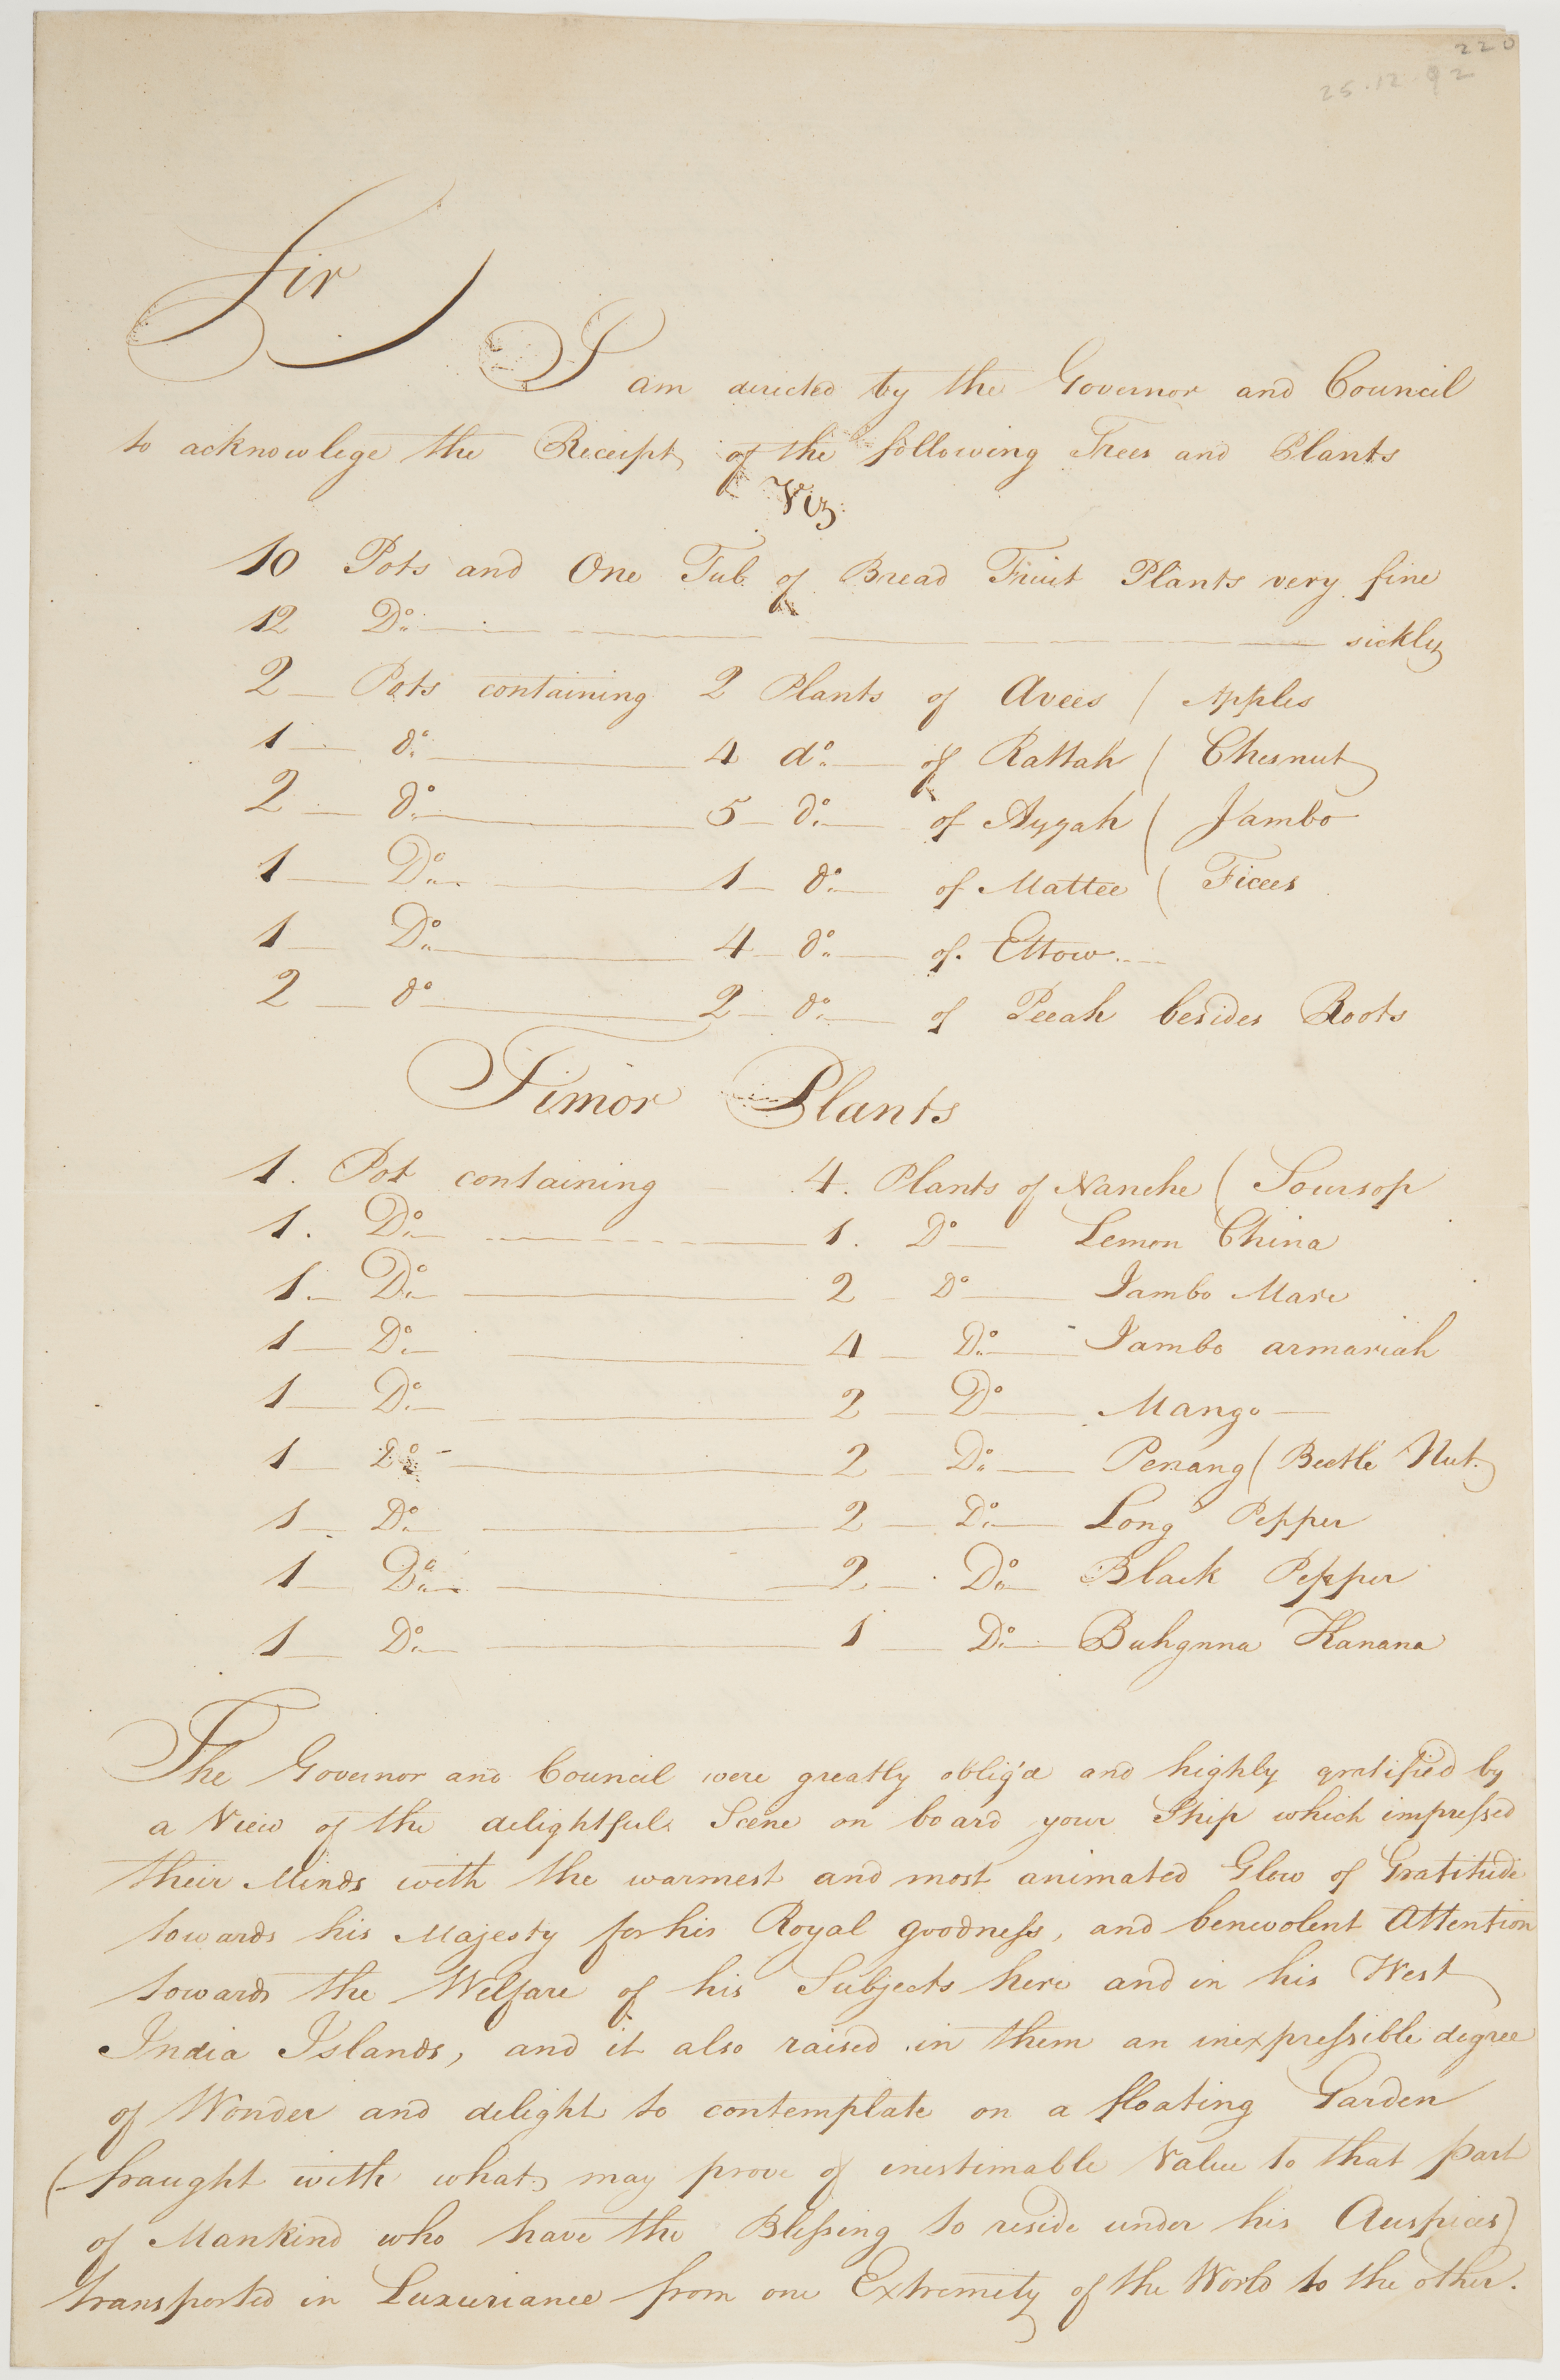 220
25.12.92
Sir
I am directed by the Governor and Council
to acknowlege the Receipt of the following Trees and Plants
Viz.
10 Pots and One Tub of Bread Fruit Plants very fine
12 Do. sickly
2 Pots containing 2 Plants of Avees ( Apples
1 do. 4 do. of Rattah ( Chesnut
2 do. 5 do. of Ayyah ( Jambo
1 Do. 1 do. of Mattee ( Ficees
1 Do. 4 do. of Ettow
2 do 2 do. of Peeah besides Roots
Timor Plants
1. Pot containing 4. Plants of Nanche ( Soursop
1. Do. 1. Do Lemon China
1. Do. 2 Do Jambo Mare
1 Do. 4 Do. Jambo armariah
1 Do. 2 Do Mango
1 Do 2 Do. Penang ( Beetle Nut.
1 Do. 2 Do. Long Pepper
1 Do. 2 Do. Black Pepper
1 Do. 1 Do. Buhgnna Kanana
The Governor and Council were greatly oblig'd and highly gratified by
a View of the delightful Scene on board your Ship which impressed
their Minds with the warmest and most animated Glow of Gratitude
towards his Majesty for his Royal goodness, and benevolent Attention
towards the Welfare of his Subjects here and in his West
India Islands, and it also raised in them an inexpressible degree
of Wonder and delight to contemplate on a floating Garden
(fraught with what may prove of inestimable Value to that part
of Mankind who have the Blessing to reside under his Auspices)
transported in Luxuriance from one Extremity of the World to the other.